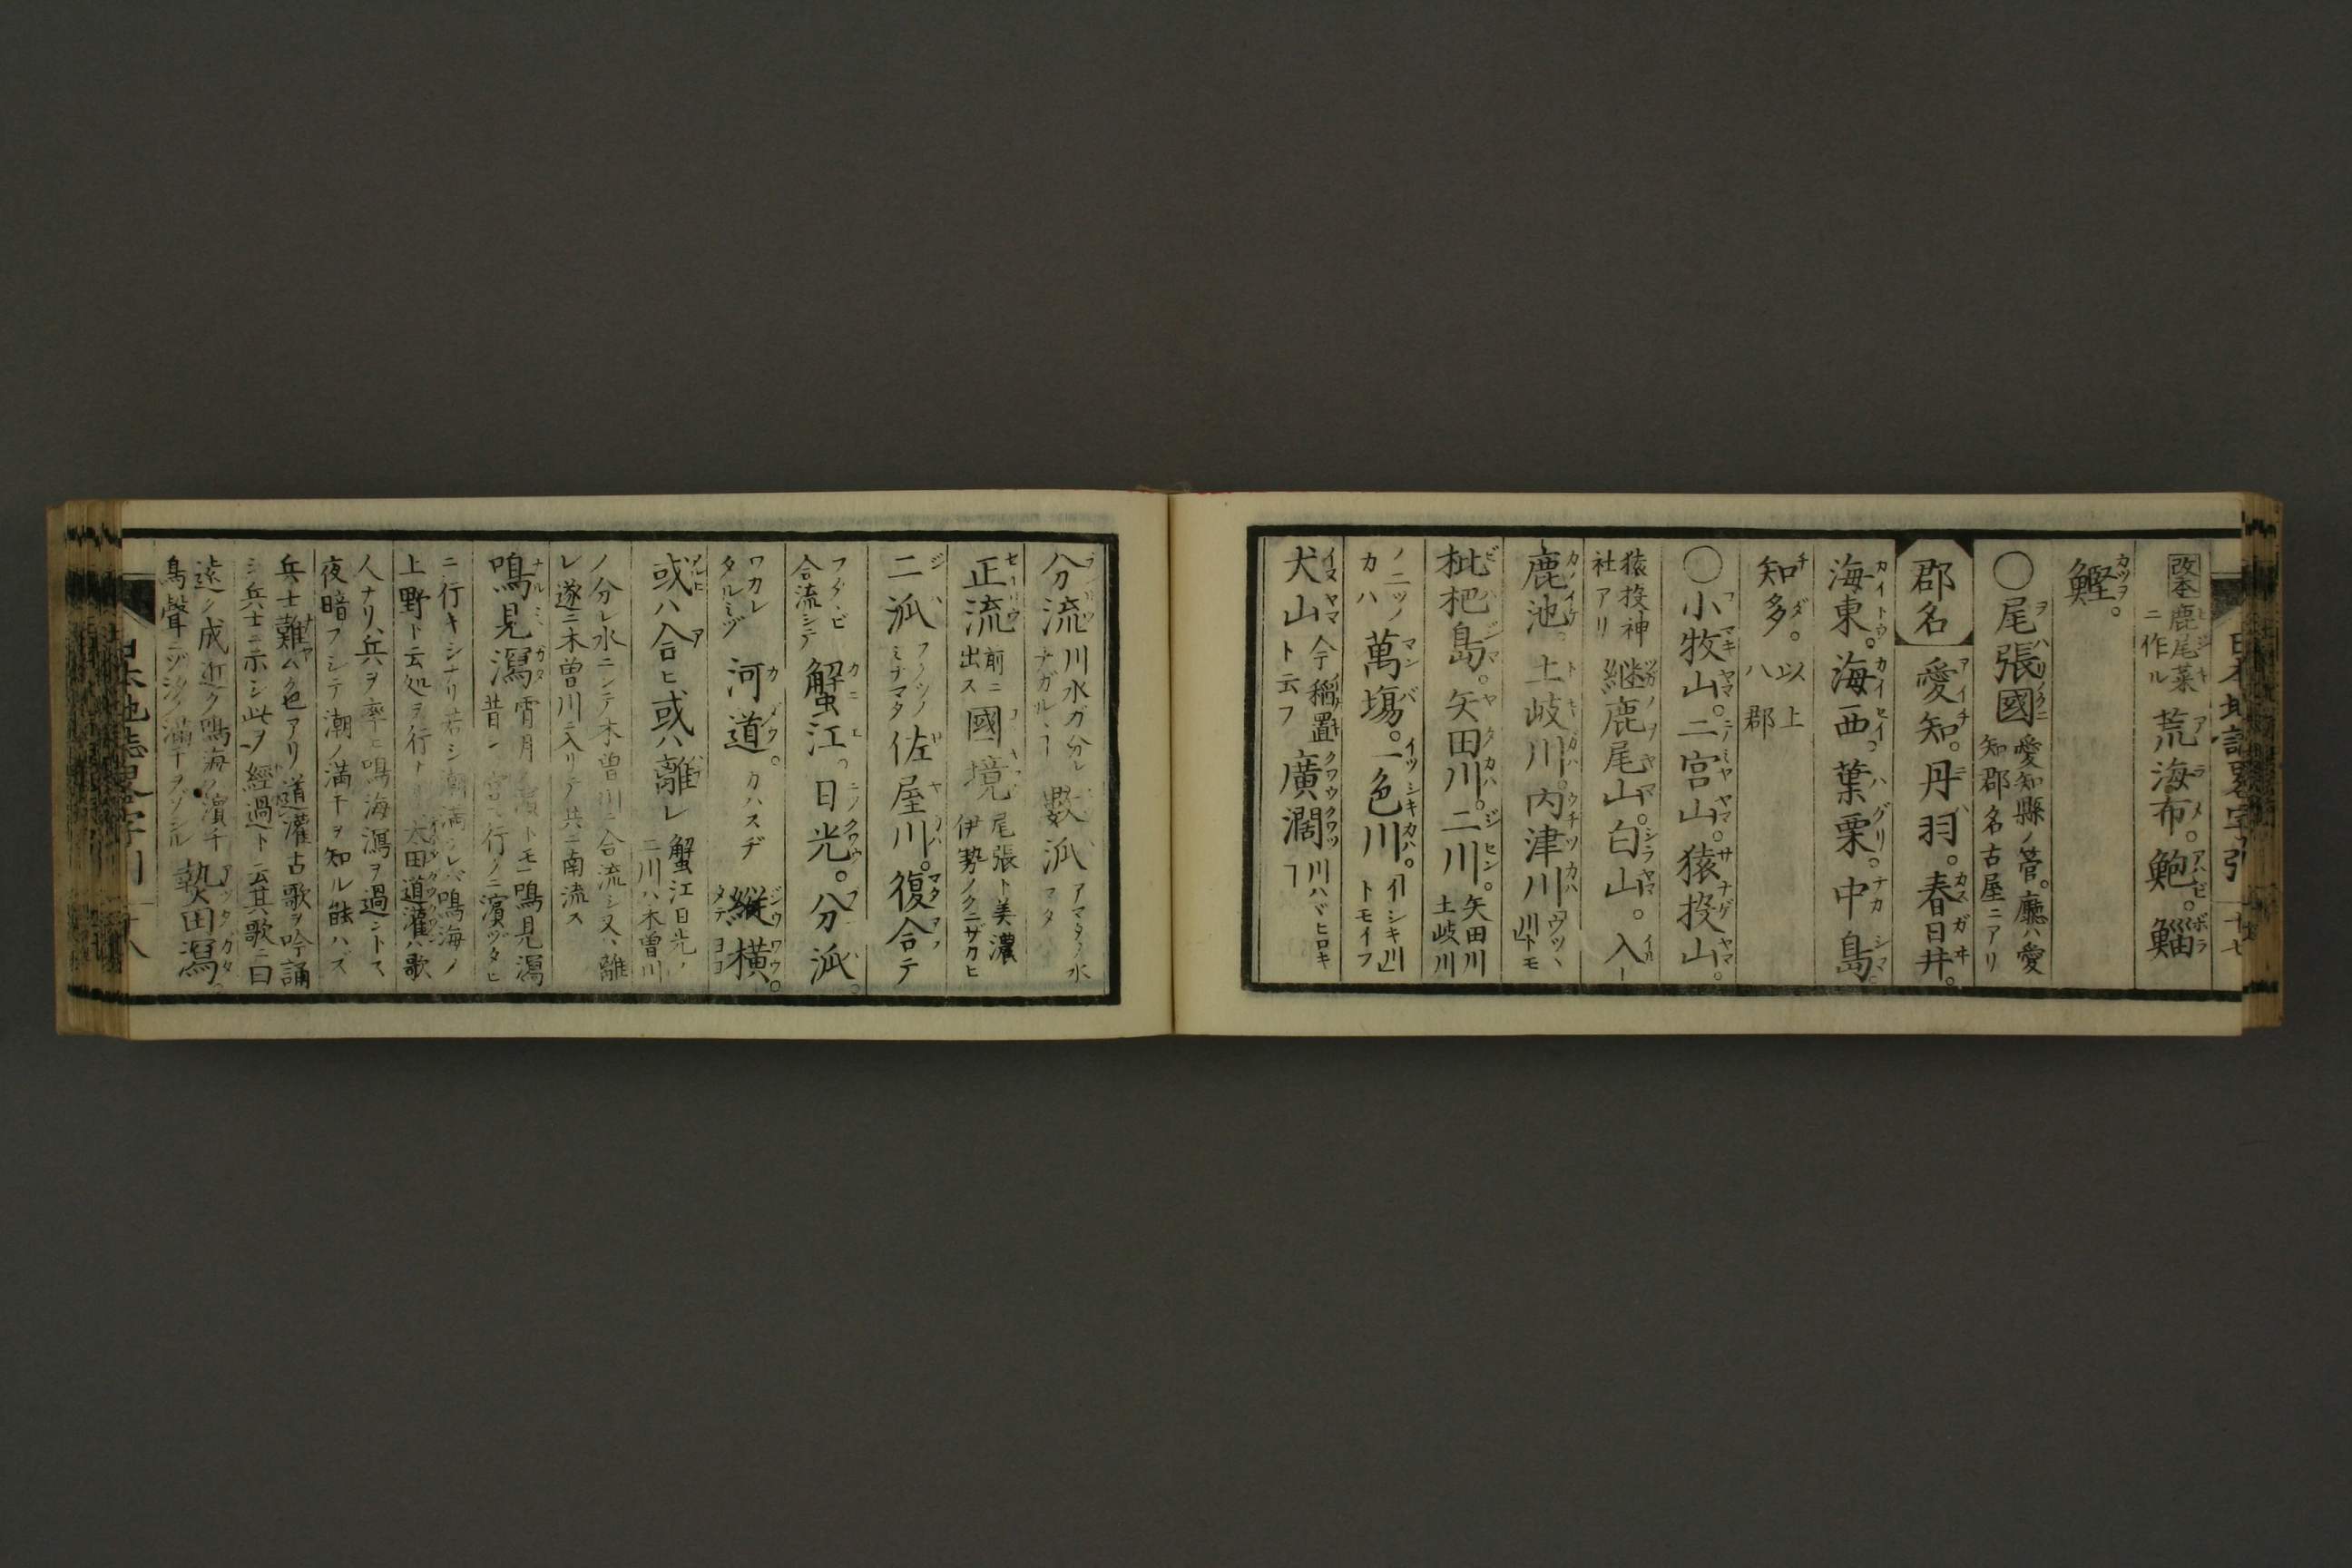 改本 鹿尾菜ニ作ル 荒海布。鮑。鯔
鰹。
〇尾張國 愛知縣ノ管。廳ハ愛知郡名古屋ニアリ
郡名 愛知。丹羽。春日井。
海東。海西。葉栗。中島。
知多。以上八郡
〇小牧山。二宮山。猿投山。
猿投神社アリ 継鹿尾山。白山。入
鹿池。土岐川。内津川 ウツヽ川トモ
枇杷島。矢田川。二川。矢田川土岐川
ノ二ツノカハ 萬塲。一色川。イシキ川トモイフ
犬山 今稲置ト云フ 廣濶 川ハヾヒロキ
分流 川水ガ分レナガル 數派 アマタノ水マタ
正流 前ニ出ス 國境 尾張ト美濃伊勢ノクニザカヒ
二派 フタツノミナマタ 佐屋川。復合テ
フタヽビ合流シテ 蟹江。日光。分派。
ワカレタルミヅ 河道。カハスヂ 縦横。
或ハ合ヒ或ハ離レ 蟹江日光ノ二川ハ木曽川
ノ分レ水ニシテ木曽川ニ合流シ又ハ離レ遂ニ木曽川ニ入リテ共ニ南流ス
鳴見瀉 トモ鳴見瀉昔シ 行ノニ濱ヅタヒ
ニ行キシナリ若シ潮満ツレバ鳴海ノ上野ト云処ヲ行 太田道灌ハ歌
人ナリ、兵ヲ率ヒ鳴海瀉ヲ過ントス夜暗フシテ潮ノ満干ヲ知ル能ハズ
兵士難ム色アリ道灌古歌ヲ吟誦シ兵士ニ示シ此ヲ經過ト云其歌ニ曰
遠ク成近ク鳴海ノ濱千鳥聲ニゾ汐ノ満干ヲゾシル 熱田瀉。